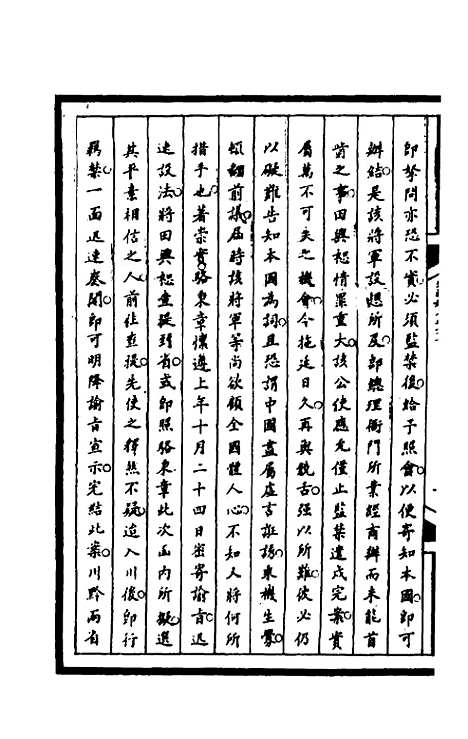 即拏問亦恐不實必須監禁後給予照會以便寄知本國即可
辦結是該將軍設想所及即總理衙門所業經商辦而未能首
肯之事田興恕情罪重大該公使應允僅止監禁遣戍完案實
屬萬不可失之機會今拖延日久再與饒舌強以所難彼必仍
以礙難告知本國為詞且恐謂中國盡屬虛言誑誘乘機生釁
頓翻前議屆時該將軍等尚欲顧全國體人心不知又將何所
措手也著崇實駱秉章懍遵上年十月二十四日密寄諭旨迅
速設法將田興恕重提到省或即照駱秉章此次函內所擬選
其平素相信之人前往並提先使之釋然不疑迨入川後即行
羈禁一面迅速奏聞即可明降諭旨宣示完結此案川黔兩省